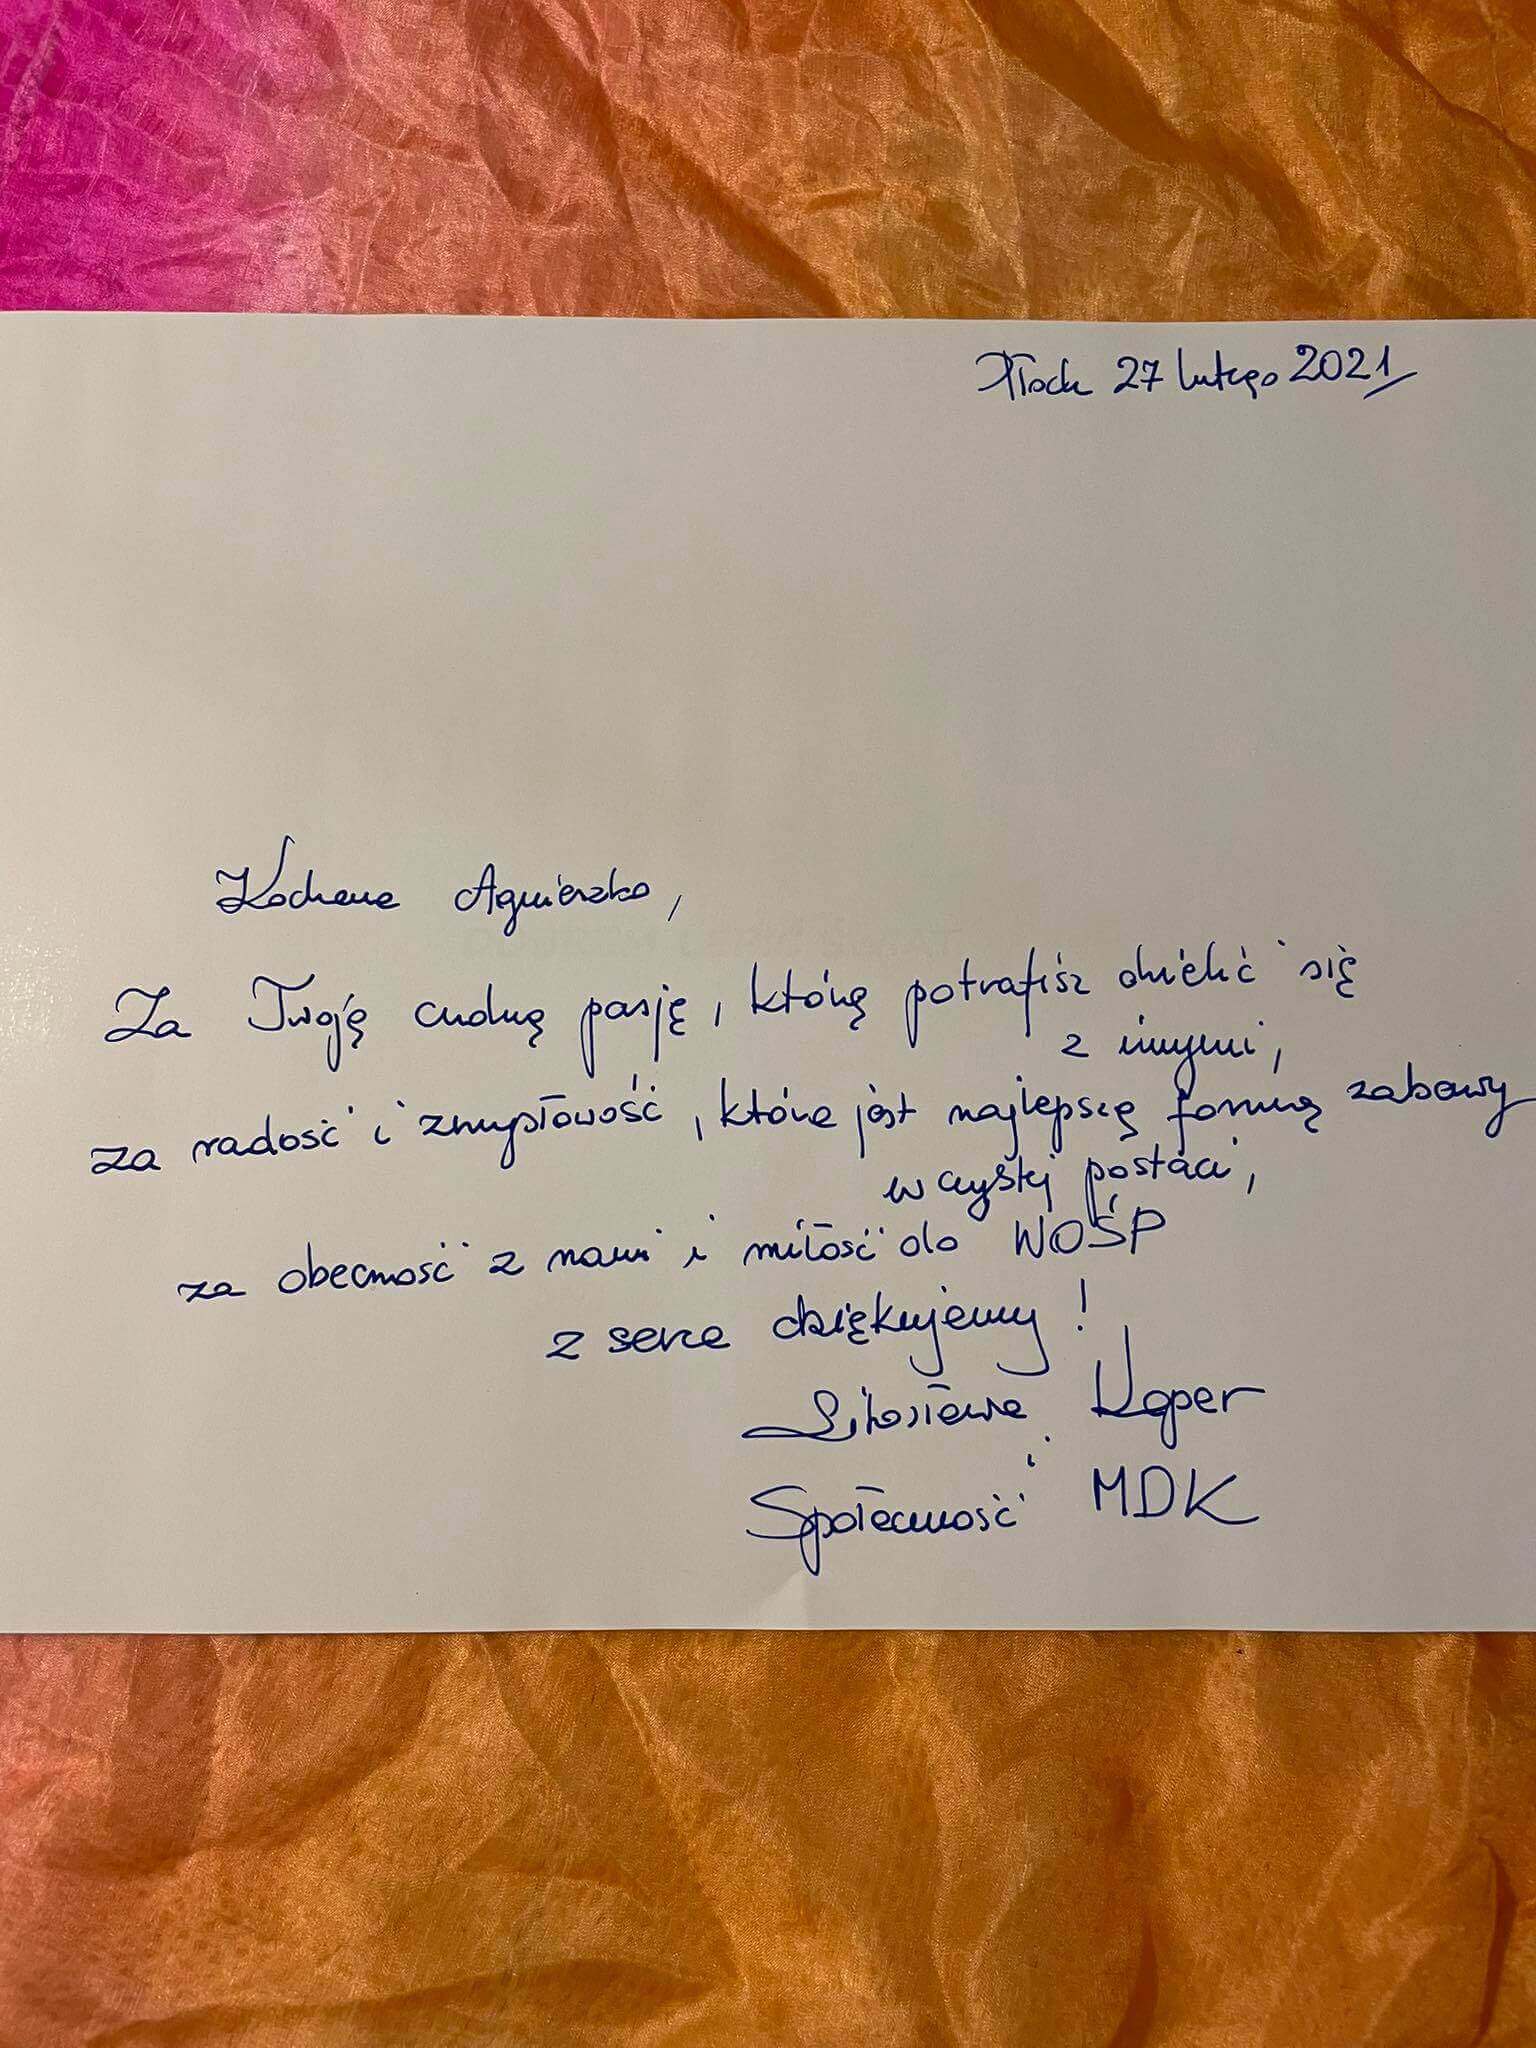 Płock 27 lutego 2021
Kochana Agnieszko,
Za Twoją cudną pasję, którą potrafisz dzielić się
z innymi,
za radość i zmysłowość, która jest najlepszą formą zabawy
w czystej postaci,
za obecność z nami i miłość do WOŚP
z serca dziękujemy!
Koper
i
Społeczność MDK